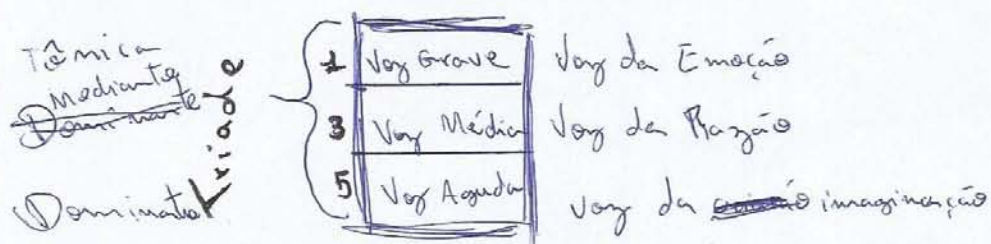 Tônica
Mediante
Dominante
Dominante
Tríade
1 Voz Grave Voz da Emoção
3 Voz Média Voz da Razão
5 Voz Aguda Voz da imaginação